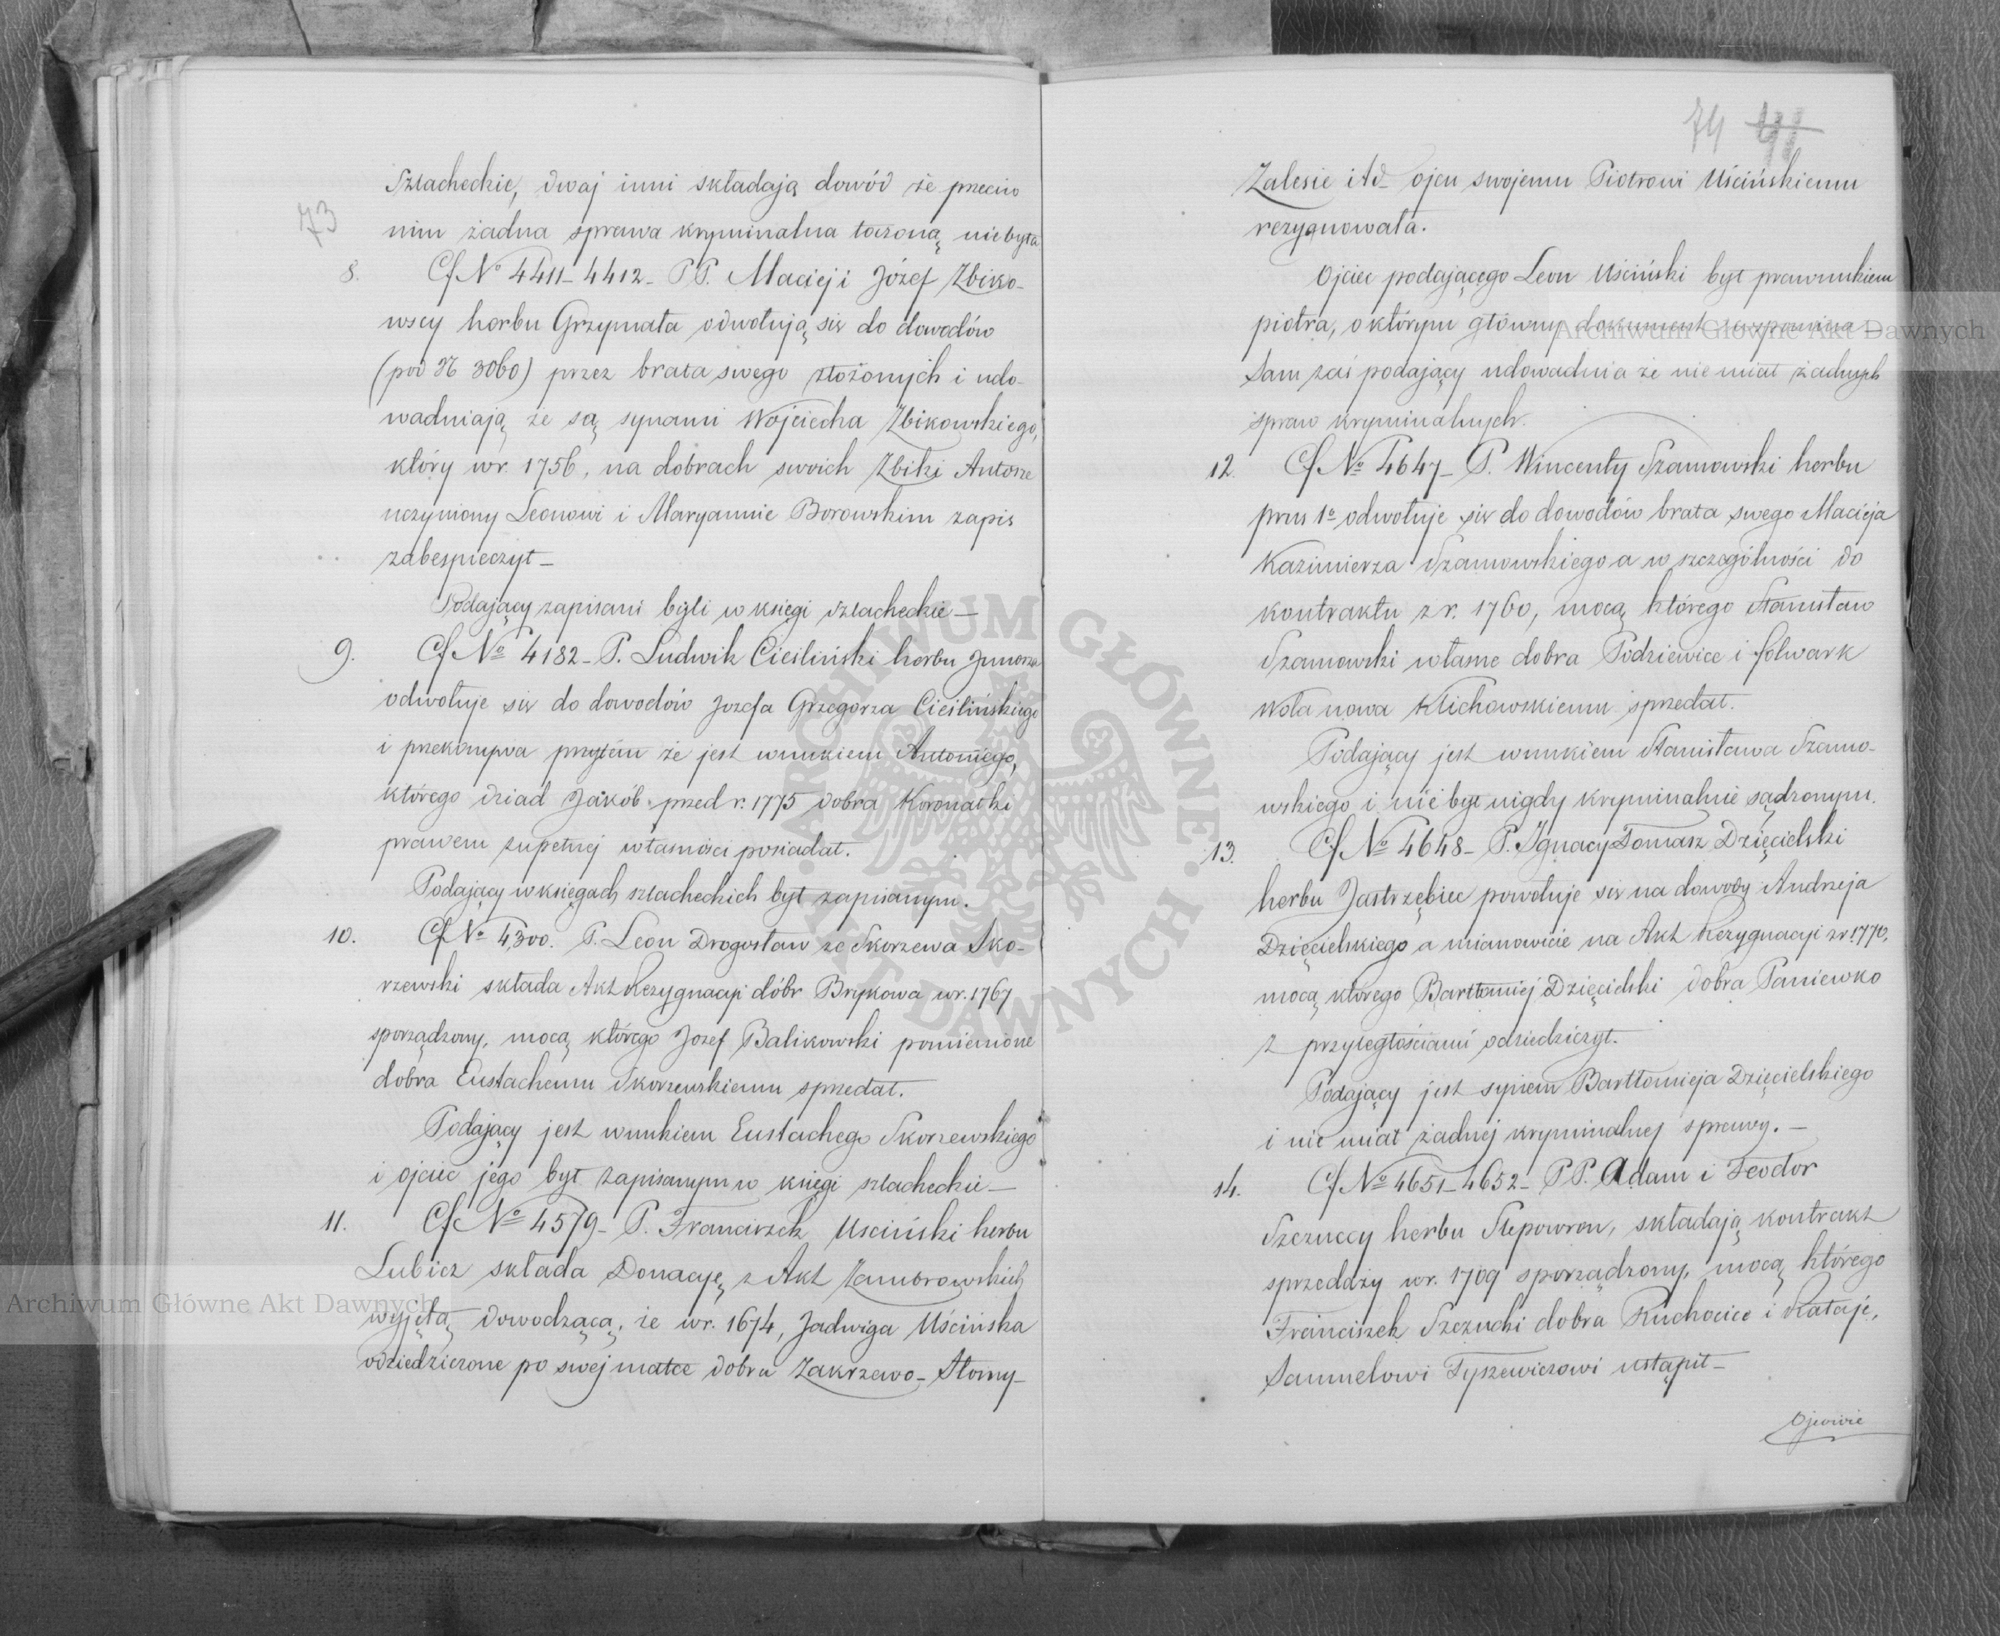 73
Szlacheckie, dwaj inni składają dowód że przeciw
nim żadna sprawa kryminalna toczoną niebyła
8. Cf No 4411-4412- PP. Maciej i Józef Zbiko-
wscy herbu Grzymała odwołują się do dowodów
(pod No 3060) przez brata swego złożonych i udo-
wadniają że są synami Wojciecha Zbikowskiego,
który w r. 1756, na dobrach swoich Zbiki Antosze
uczyniony Leonowi i Maryannie Borowskim zapis
zabespieczył -
Podający zapisani byli w księgi szlacheckie -
9. Cf No 4182- P. Ludwik Cieśliński herbu Junosza
odwołuje się do dowodów Jozefa Grzegorza Cieślińskiego
i przekonywa przytém że jest wnukiem Antoniego,
którego dziad Jakób przed r. 1775 dobra Koronatki
prawem zupełnej własności posiadał.
Podający w księgach szlacheckich był zapisanym.
10. Cf No 4,300. P. Leon Drogosław ze Skorzewa Sko-
rzewski składa Akt Rezygnacyi dóbr Brykowa w r. 1767
sporządzony, mocą którego Jozef Balikowski pomienione
dobra Eustachemu Skorzewskiemu sprzedał.
Podający jest wnukiem Eustachego Skorzewskiego
i ojciec jego był zapisanym w księgi szlacheckie -
11. Cf No 4579- P. Franciszek Usciński herbu
Lubicz składa Donacyę z Akt Zambrowskich
wyjętą dowodzącą, że w r. 1674, Jadwiga Uścińska
odziedziczone po swej matce dobra Zakrzewo - Słomy-
74
Zalesie itd - ojcu swojemu Piotrowi Uścińskiemu
rezygnowała.
Ojciec podającego Leon Uściński był prawnukiem
piotra, o którym główny dokument wspomina -
Sam zaś podający udowadnia że nie miał żadnych
spraw kryminalnych.
12. Cf No 4647- P. Wincenty Szamowski herbu
prus 1o odwołuje się do dowodów brata swego Macieja
Kazimierza Szamowskiego a w szczególności do
kontraktu z r. 1760, mocą którego Stanisław
Szamowski własne dobra Podziewice i folwark
Wola nowa Klichowskiemu sprzedał.
Podający jest wnukiem Stanisława Szamo-
wskiego i nie był nigdy kryminalnie sądzonym.
13. Cf No 4648- P. Ignacy Tomasz Dzięcielski
herbu Jastrzębiec powołuje się na dowody Andrzeja
Dzięcielskiego a mianowicie na Akt Rezygnacyi z r. 1770,
mocą którego Bartłomiej Dzięcielski dobra Paniewko
z przyległościami odziedziczył.
Podający jest synem Bartłomieja Dzięcielskiego
i nie miał żadnej kryminalnej sprawy. -
14. Cf No 4651-4652- PP. Adam i Teodor
Szczuccy herbu Slepowron, składają kontrakt
sprzedaży w r. 1709 sporządzony, mocą którego
Franciszek Szczucki dobra Ruchocice i Rataje,
Samuelowi Tyszewiczowi ustąpił -
Ojcowie
Archiwum Główne Akt Dawnych
Archiwum Główne Akt Dawnych
ARCHIWUM GŁÓWNE AKT DAWNYCH